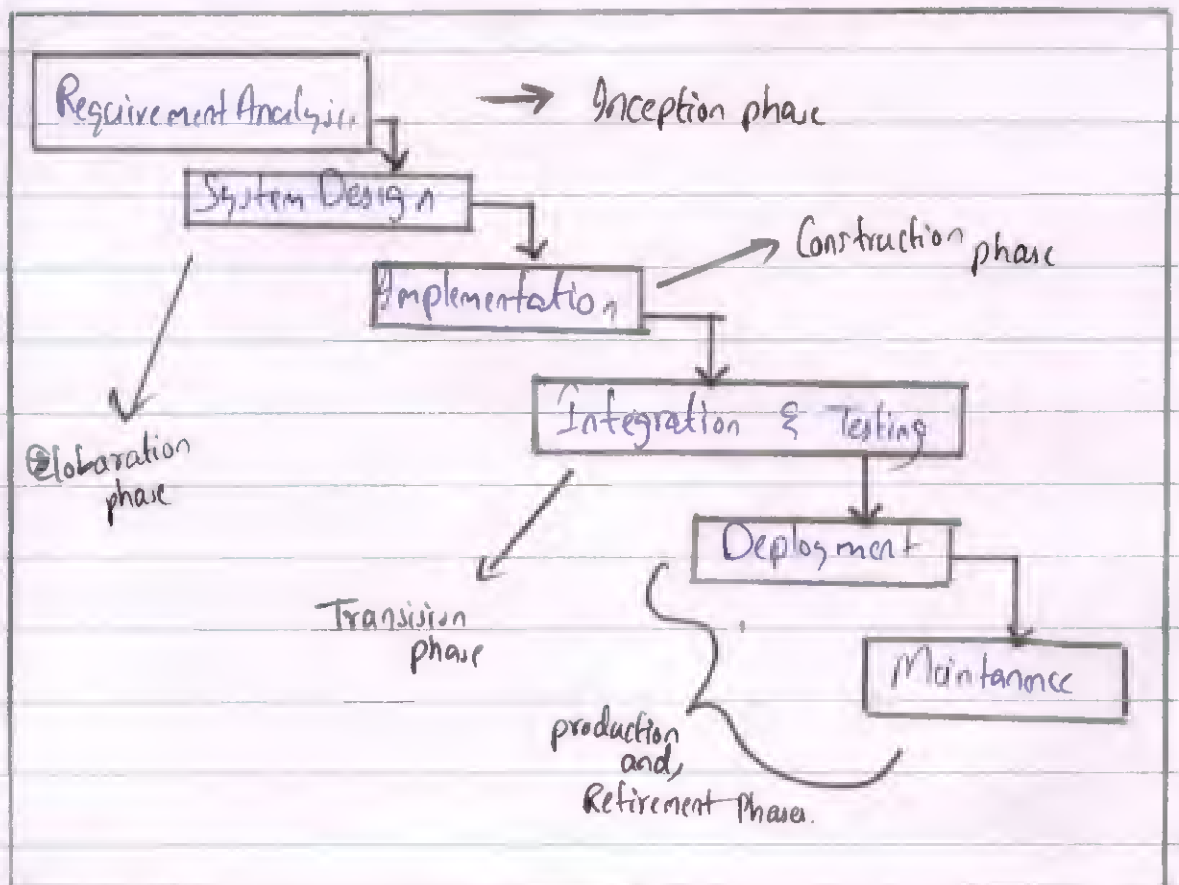 Requirement Analysis
→ Inception phase
System Design
Construction phase
Implementation
Integration & Testing
Elobaration
phase
Deployment
Transision
phase
Maintanance
production
and,
Retirement Phases.